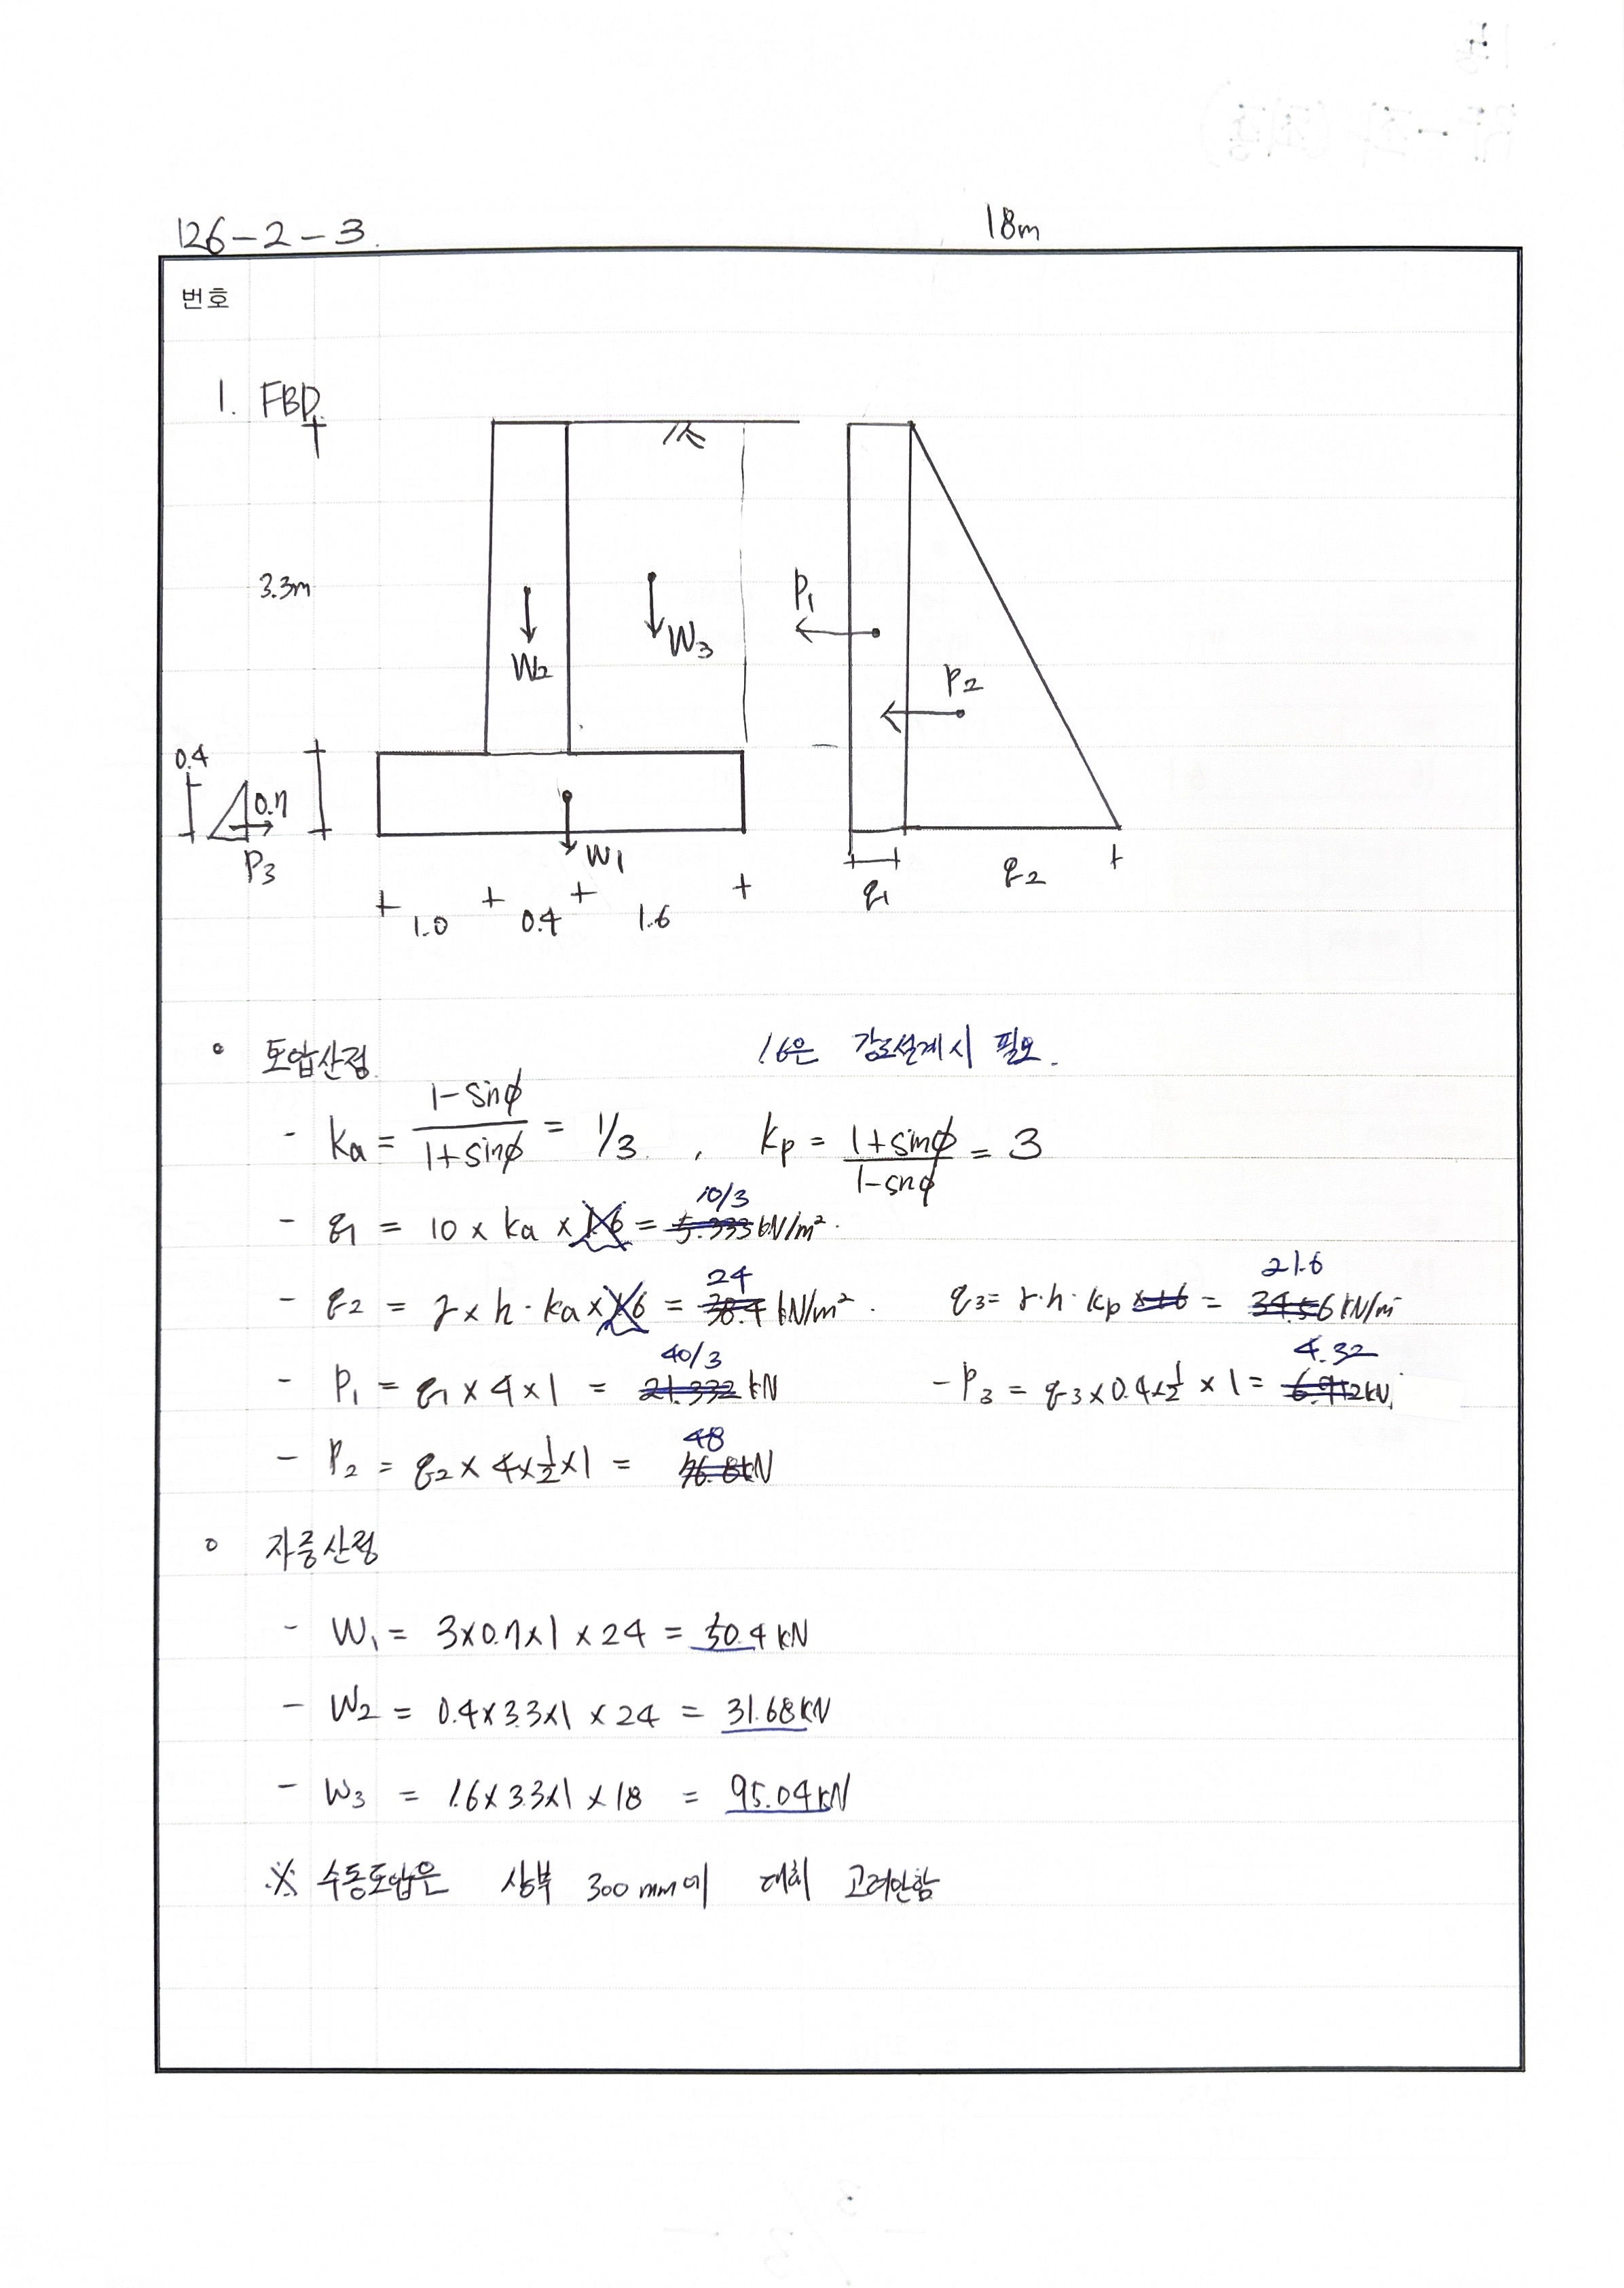 126-2-3.
18m
번호
1. FBD
3.3m
W2
W3
P1
P2
0.4
0.7
P3
W1
1.0 0.4 1.6
q1
q2
◦ 토압산정
1.6은 강도설계시 필요.
- Ka = (1-sinϕ)/(1+sinϕ) = 1/3 , Kp = (1+sinϕ)/(1-sinϕ) = 3
10/3
- q1 = 10 × ka × 1.6 = 5.333 kN/m².
24
21.6
- q2 = γ × h · ka × 1.6 = 38.4 kN/m². q3 = γ·h· kp × 1.6 = 34.56 kN/m²
40/3
4.32
- P1 = q1 × 4 × 1 = 21.332 kN - P3 = q3 × 0.4 × 1/2 × 1 = 6.912 kN
48
- P2 = q2 × 4 × 1/2 × 1 = 76.8 kN
◦ 자중산정
- W1 = 3×0.7×1 × 24 = 50.4 kN
- W2 = 0.4×3.3×1 × 24 = 31.68 kN
- W3 = 1.6×3.3×1 × 18 = 95.04 kN
※ 수동토압은 상부 300mm에 대해 고려안함